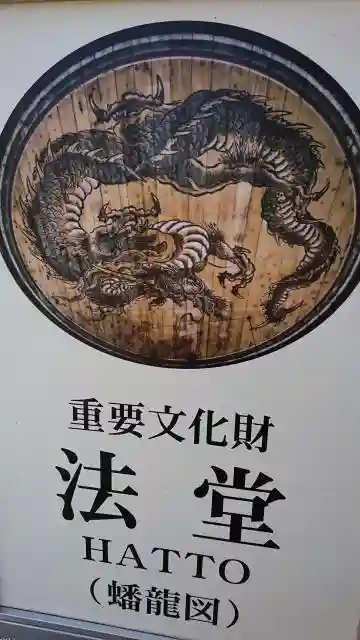 重要文化財
法堂
HATTO
(蟠龍図)